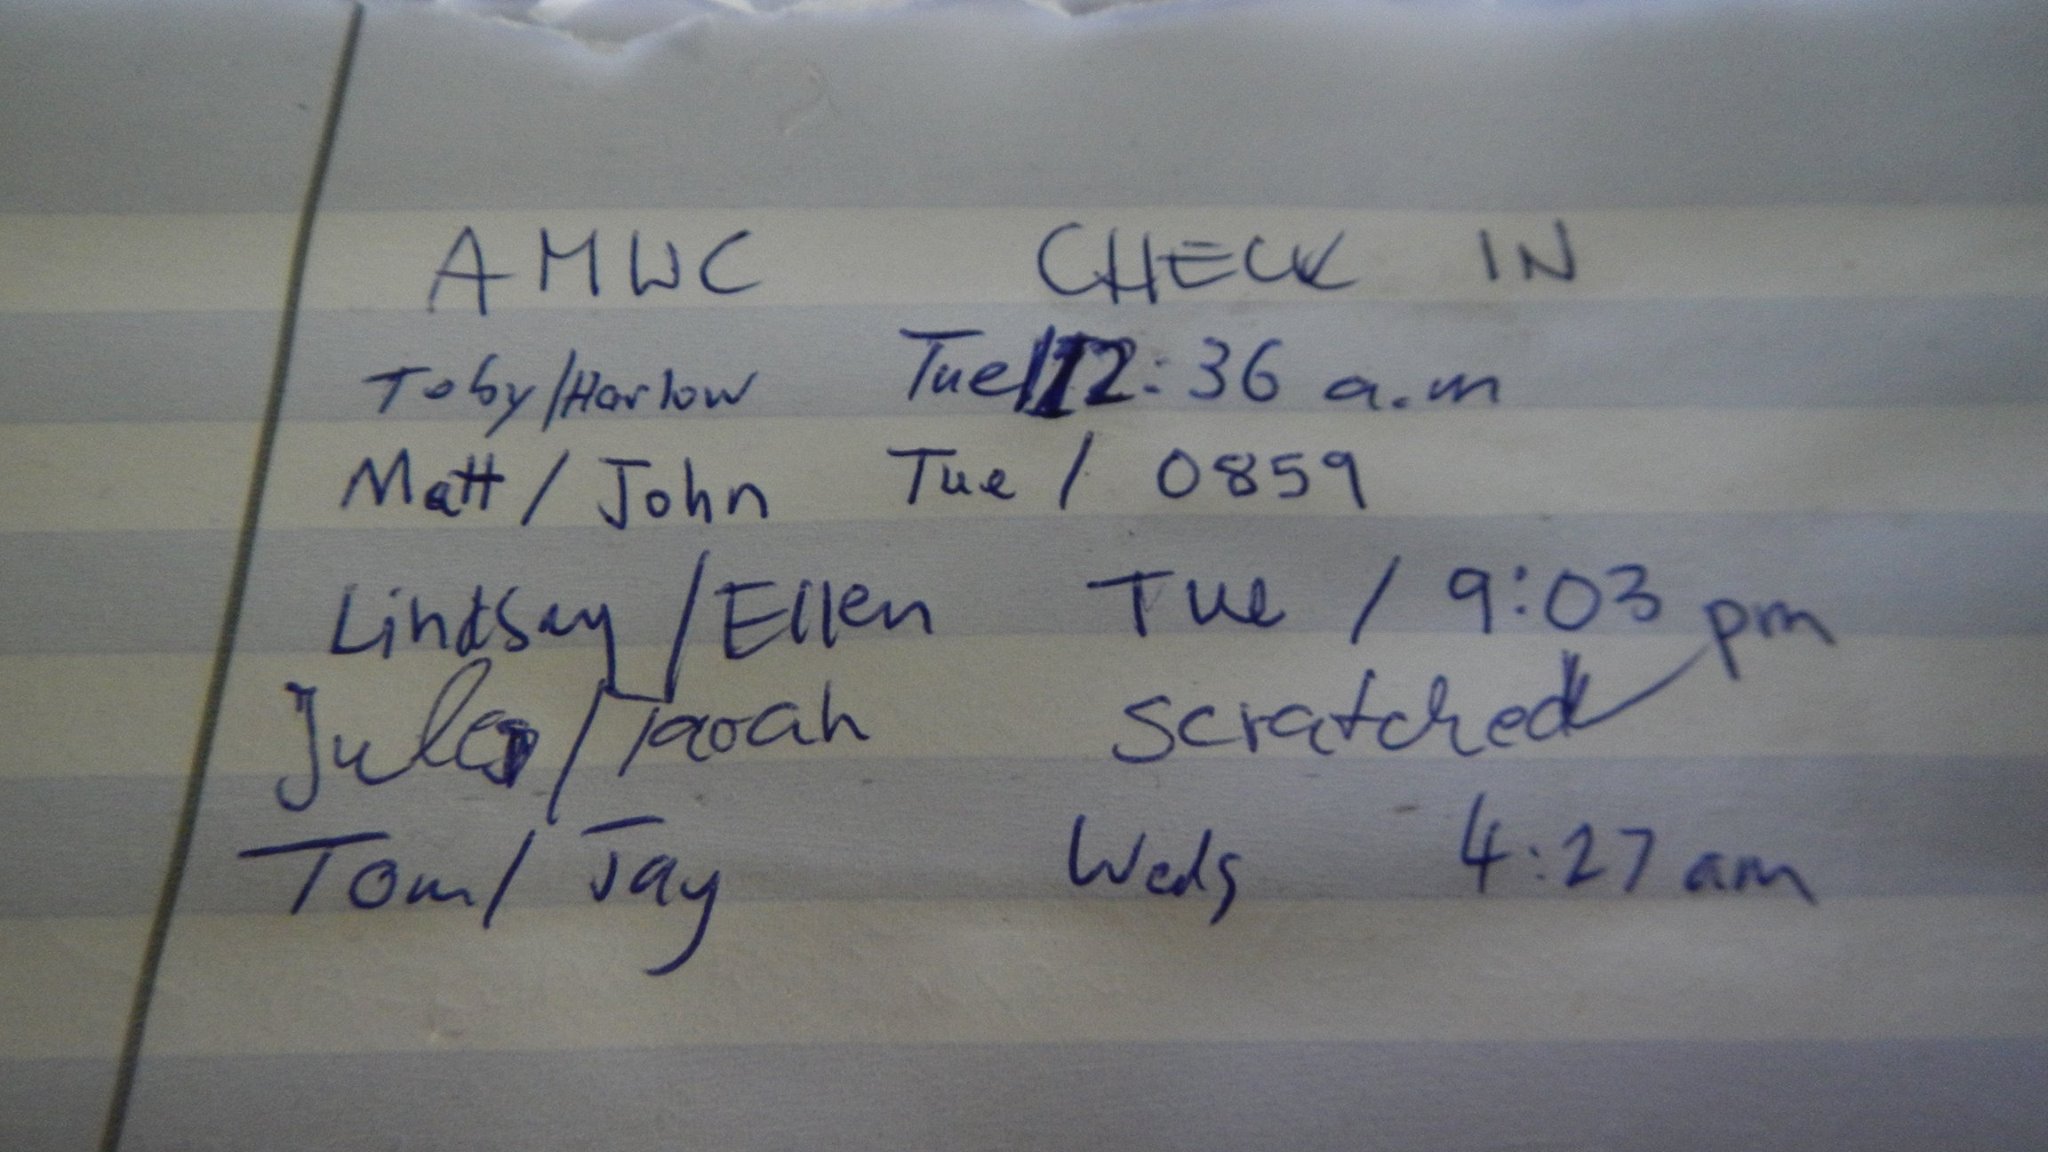 AMWC CHECK IN
Toby/Harlow Tue/12:36 a.m
Matt / John Tue / 0859
Lindsay / Ellen Tue / 9:03 pm
Jules / Taroah scratched
Tom / Jay Weds 4:27 am